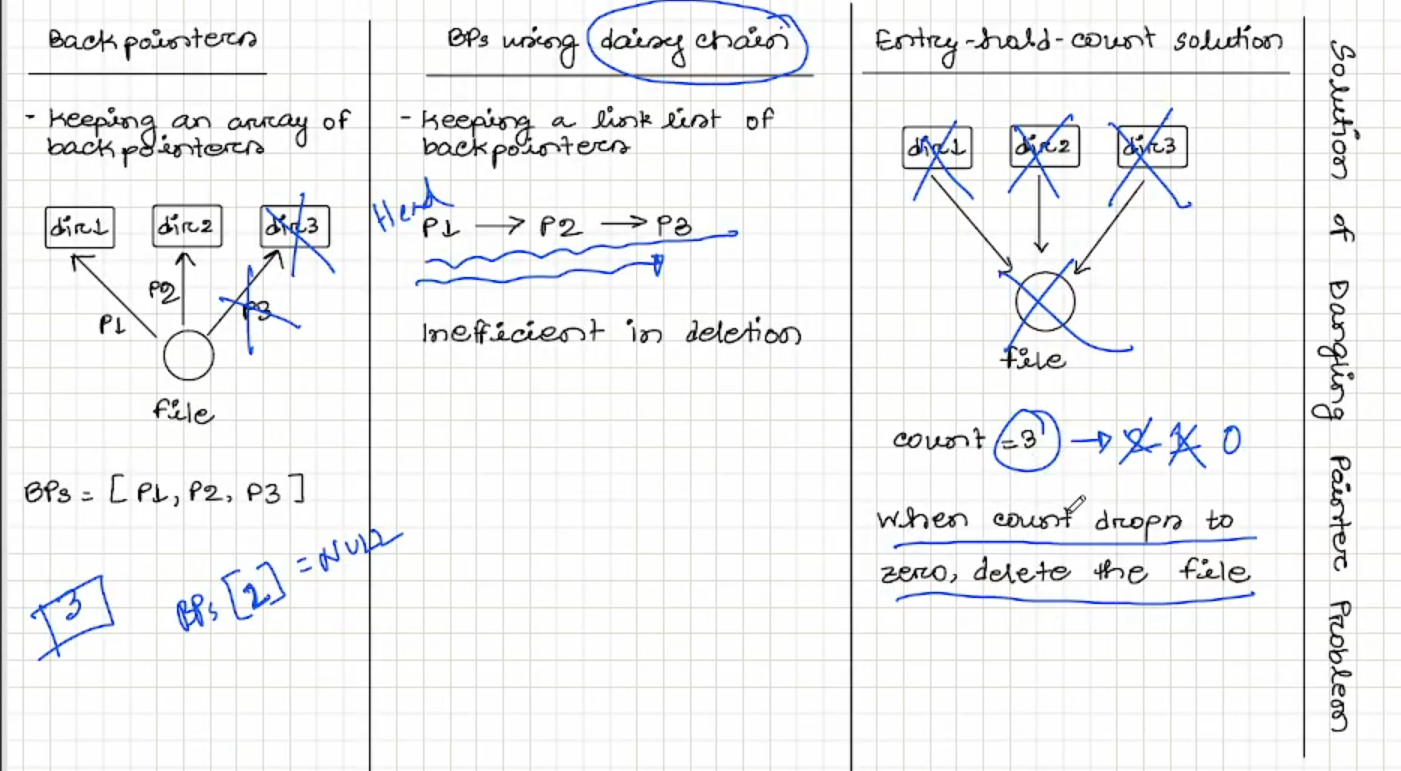 Backpointers
- Keeping an array of
backpointers
dir1 dir2 dir3
P1 P2 P3
file
BPs = [P1, P2, P3]
3
BPs [2] = NULL
BPs using daisy chain
- Keeping a link list of
backpointers
Head
P1 → P2 → P3
Inefficient in deletion
Entry-hold-count solution
dir1 dir2 dir3
file
count = 3 → 2 1 0
When count drops to
zero, delete the file
Solution of Dangling Pointer Problem